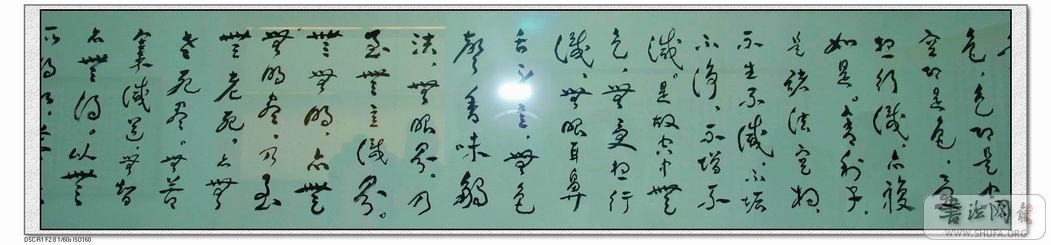 色，色即是空
空即是色。受
想行識，亦復
如是。舍利子，
是諸法空相，
不生不滅，不垢
不淨，不增不
減。是故空中無
色，無受想行
識，無眼耳鼻
舌身意，無色
聲香味觸
法，無眼界，乃
至無意識界。
無無明，亦無
無明盡，乃至
無老死，亦無
老死盡。無苦
集滅道，無智
亦無得。以無
所得故，菩
DSC-R1 F2.8 1/60s ISO160
書法网
WWW.SHUFA.ORG